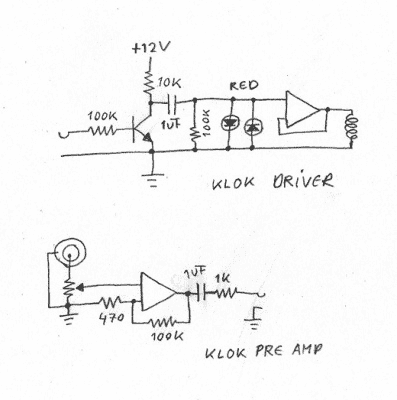 +12V
10K
RED
100K
1uF
100K
KLOK DRIVER
1uF
1K
470
100K
KLOK PRE AMP